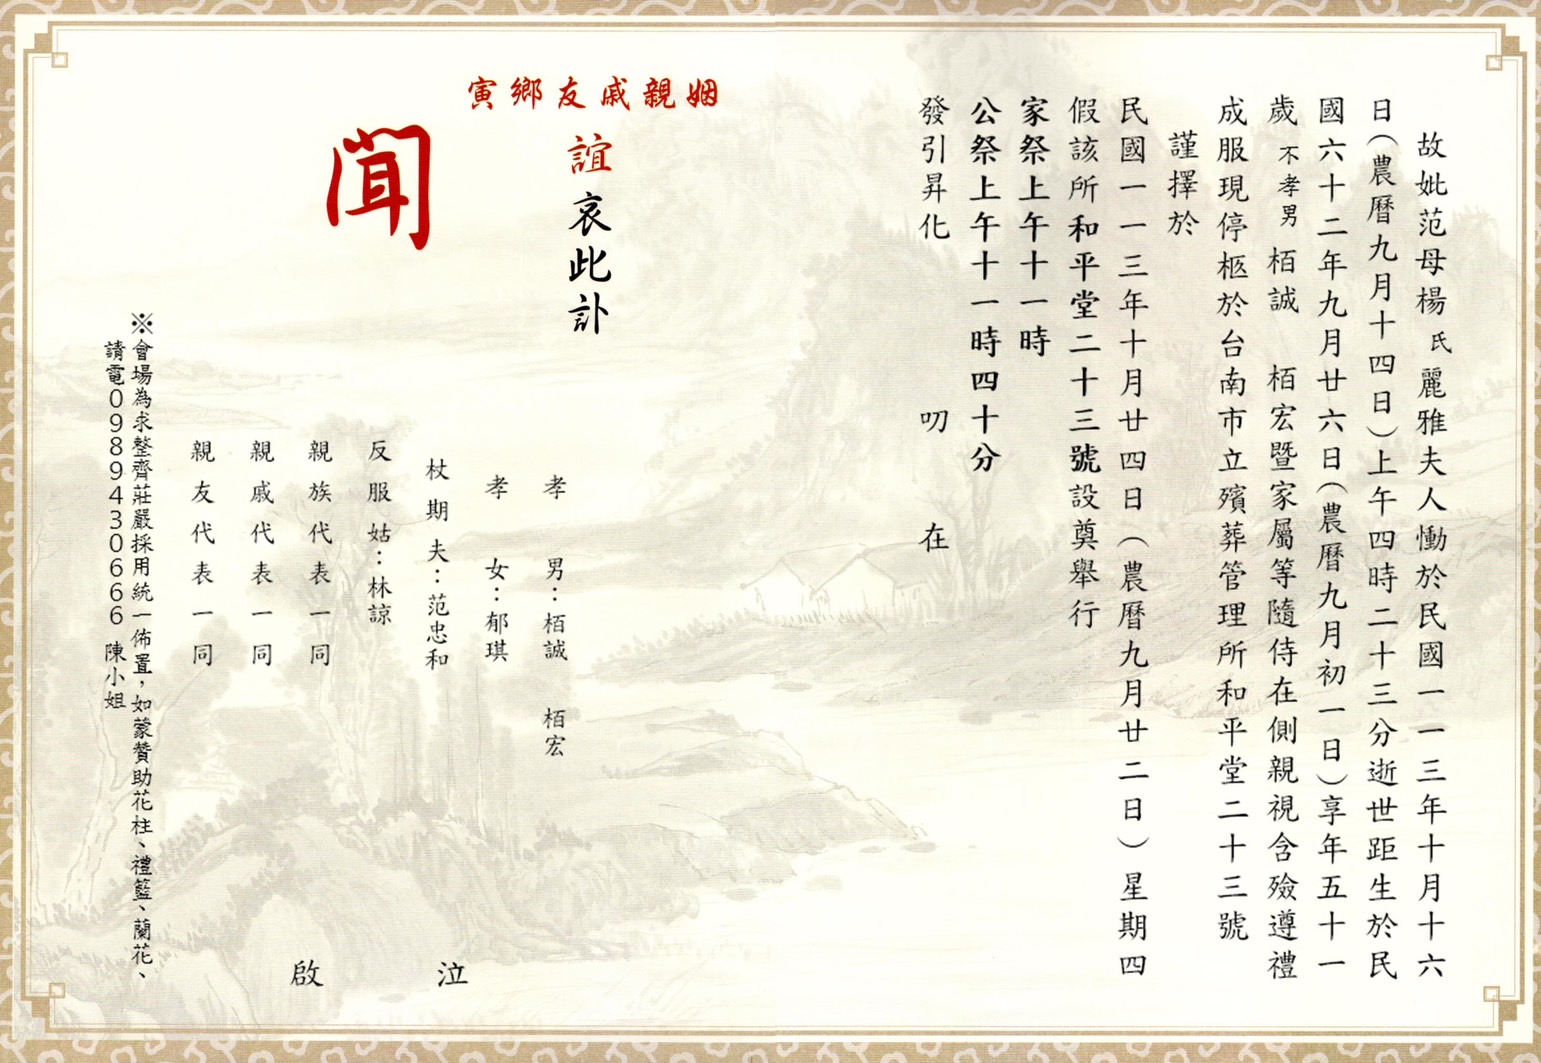 故妣范母楊氏麗雅夫人慟於民國一一三年十月十六
日(農曆九月十四日)上午四時二十三分逝世距生於民
國六十二年九月廿六日(農曆九月初一日)享年五十一
歲 不孝男 栢誠 栢宏暨家屬等隨侍在側親視含殮遵禮
成服現停柩於台南市立殯葬管理所和平堂二十三號
謹擇於
民國一一三年十月廿四日(農曆九月廿二日)星期四
假該所和平堂二十三號設奠舉行
家祭上午十一時
公祭上午十一時四十分
發引昇化 叨 在
姻親戚友鄉寅
誼哀此訃
聞
孝 男:栢誠 栢宏
孝 女:郁琪
杖期夫:范忠和
反服姑:林諒
親族代表一同
親戚代表一同
親友代表一同
泣
啟
※會場為求整齊莊嚴採用統一佈置,如蒙贊助花柱、禮籃、蘭花、
請電0989430666 陳小姐